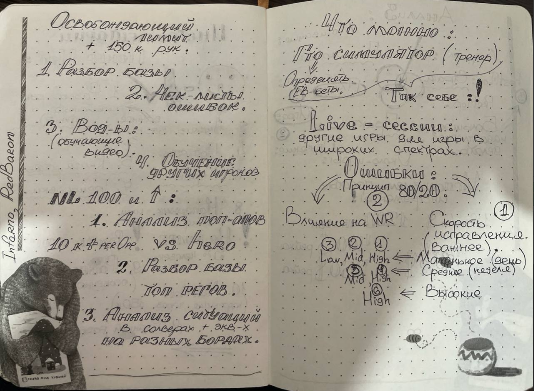 Освобождающий
лимит
+ 150 к рук.
1. Разбор базы
2. Чек-листы
ошибок.
3. Вод-ы:
(обучающие
видео)
4. Обучение
других игроков
NL 100 и ↑:
1. Анализ поп-ов
10 к vs Hero
2. Разбор базы
топ регов.
3. Анализ ситуаций
в солверах +
на разных бордах.
Inferno, RedBaron
Что можно:
Гто симулятор (тренер)
Определять
EV
Так себе :!
Live - сессии:
другие игры, для игры в
широких спектрах.
Ошибки:
Принцип 80/20:
②
①
Влияние на WR
Скорость
исправления
(важнее).
③ ② ①
Low, Mid, High ← Маленькое (день)
③ ②
Mid High ← Среднее (неделя)
High ← Высокие